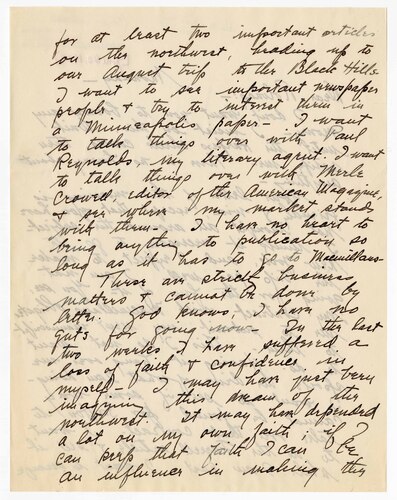 for at least two important articles
on the northwest, heading up to
our August trip to the Black Hills
I want to see important newspaper
people & try to interest them in
a Minneapolis paper - I want
to talk things over with Paul
Reynolds my literary agent. I want
to talk things over with Merle
Crowel, editor of the American Magazine,
& see where my market stands
with them - I have no heart to
bring anything to publication so
long as it has to go to Macmillans -
These are strictly business
matters & cannot be done by
letter. God knows, I have no
guts for going now - In the last
two weeks I have suffered a
loss of faith & confidence in
myself - I may have just been
imagining this dream of the
northwest. It may have depended
a lot on my own faith; if I
can keep that faith I can be
an influence in making this